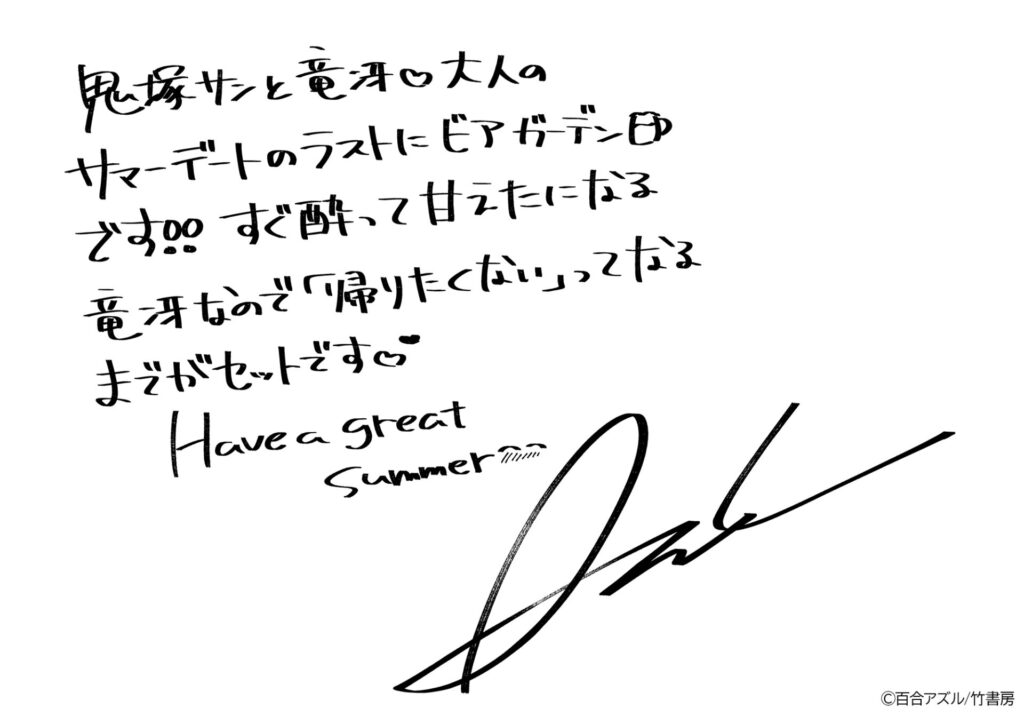 鬼塚サンと竜冴♡大人の
サマーデートのラストにビアガーデン🍺
です!! すぐ酔って甘えたになる
竜冴なので「帰りたくない」ってなる
までがセットです♡♥
Have a great
summer^^
Azul
©百合アズル/竹書房